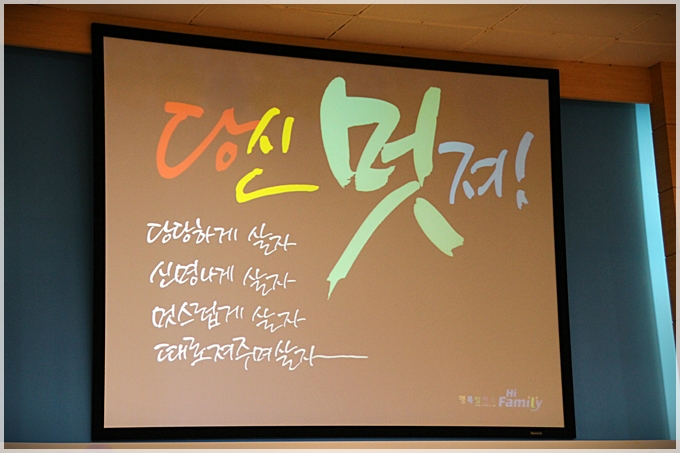 당신 멋져!
당당하게 살자
신명나게 살자
멋스럽게 살자
때로져주며살자
Hi
Family